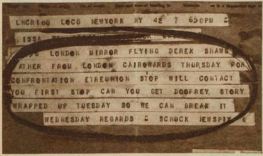 LNCRING LOCO NEWYORK NY 42 7 650PM
LONDON MIRROR FLYING DEREK SHAWS
FATHER FROM LONDON CAIROWARDS THURSDAY FOR
CONFRONTATION REUNION STOP WILL CONTACT
YOU FIRST STOP CAN YOU GET GODFREY STORY
WRAPPED UP TUESDAY SO WE CAN BREAK IT
WEDNESDAY REGARDS SCHUCK